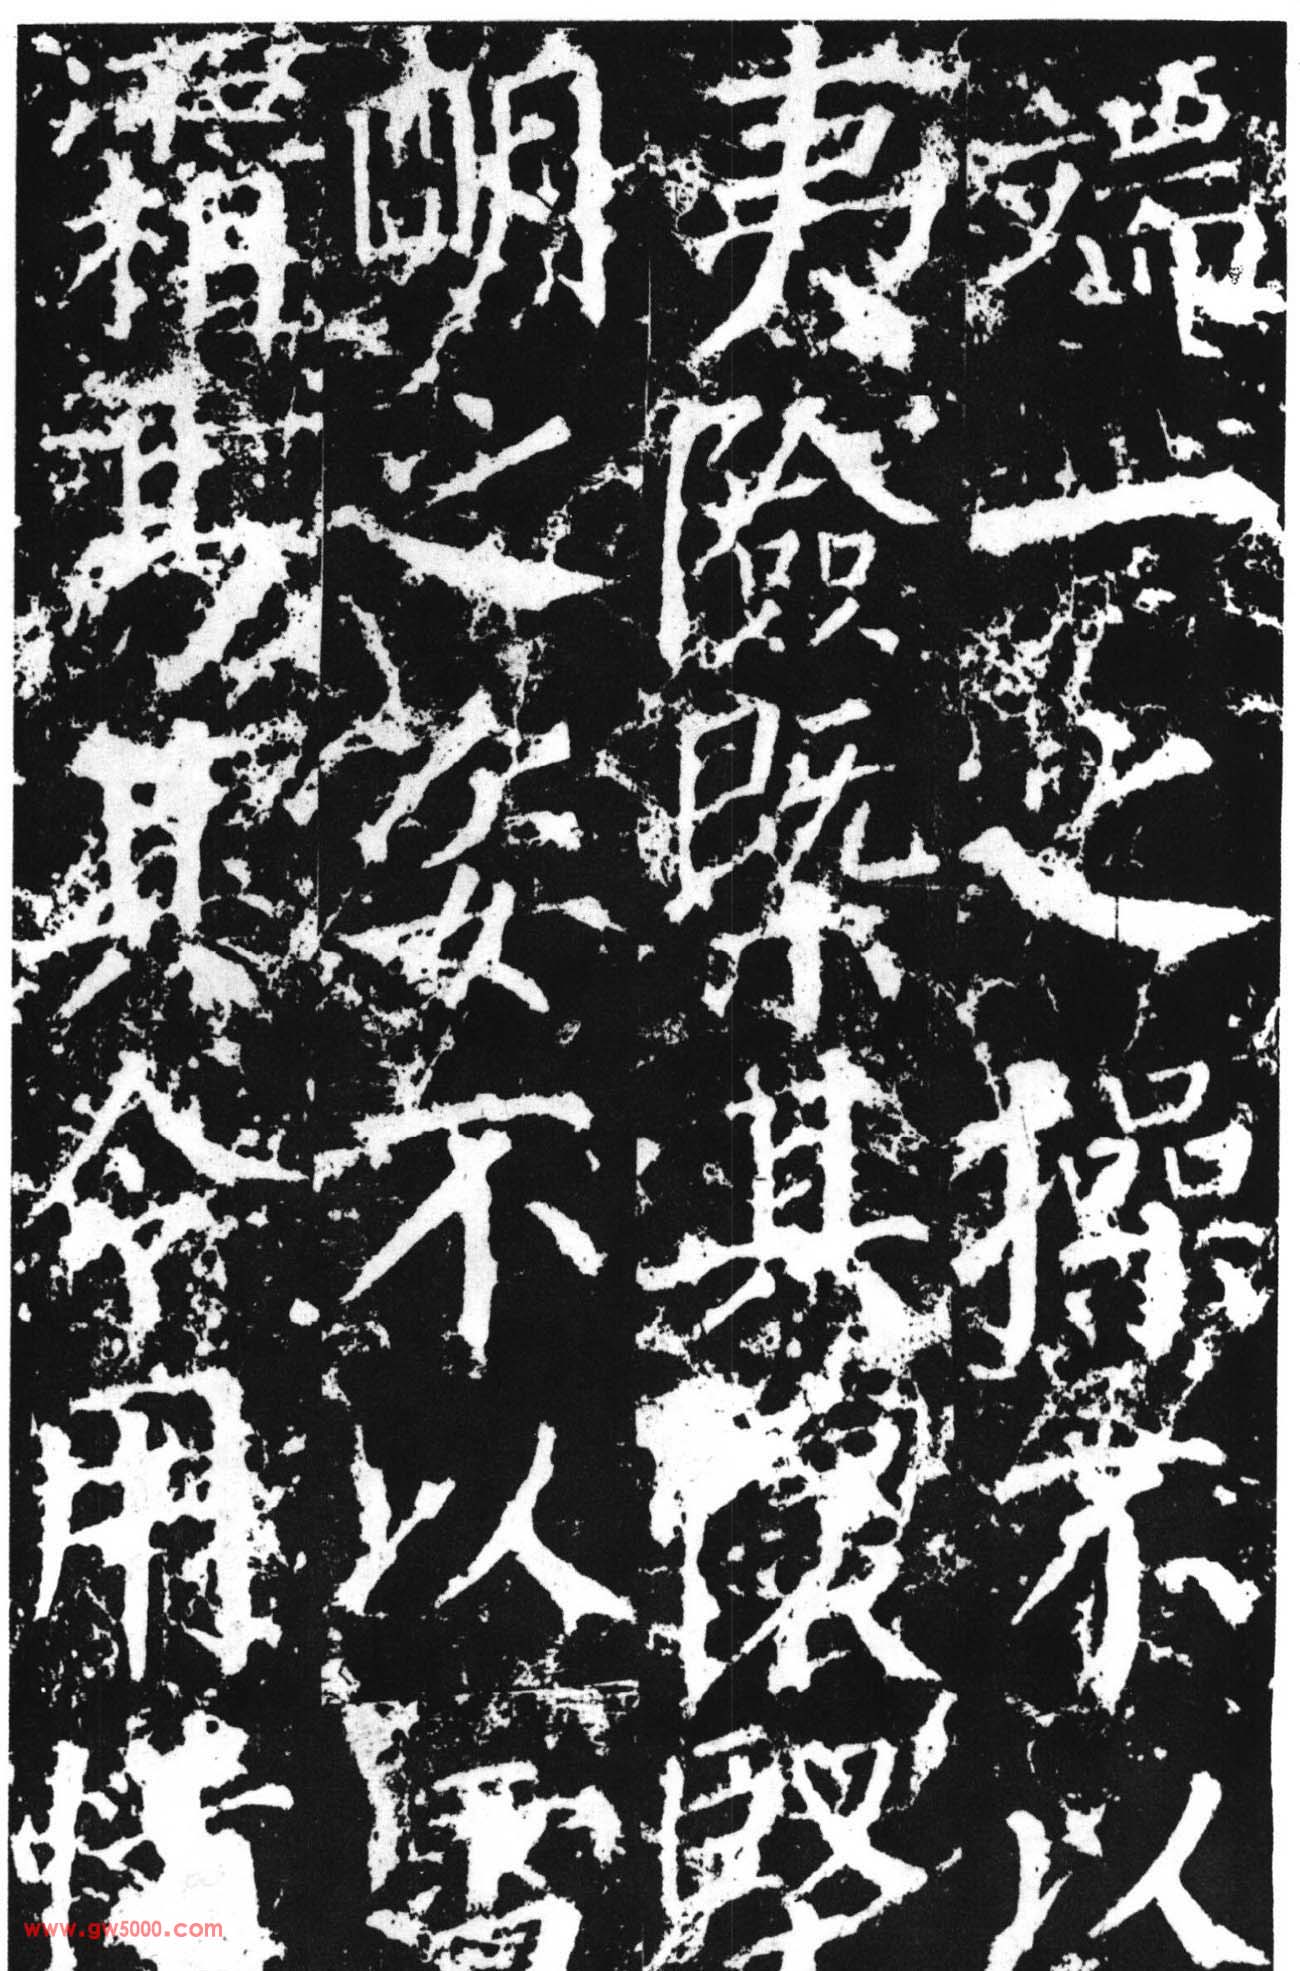 端一之操不以
夷險槩其懷堅
明之姿不以雪
霜易其令用
www.gw5000.com